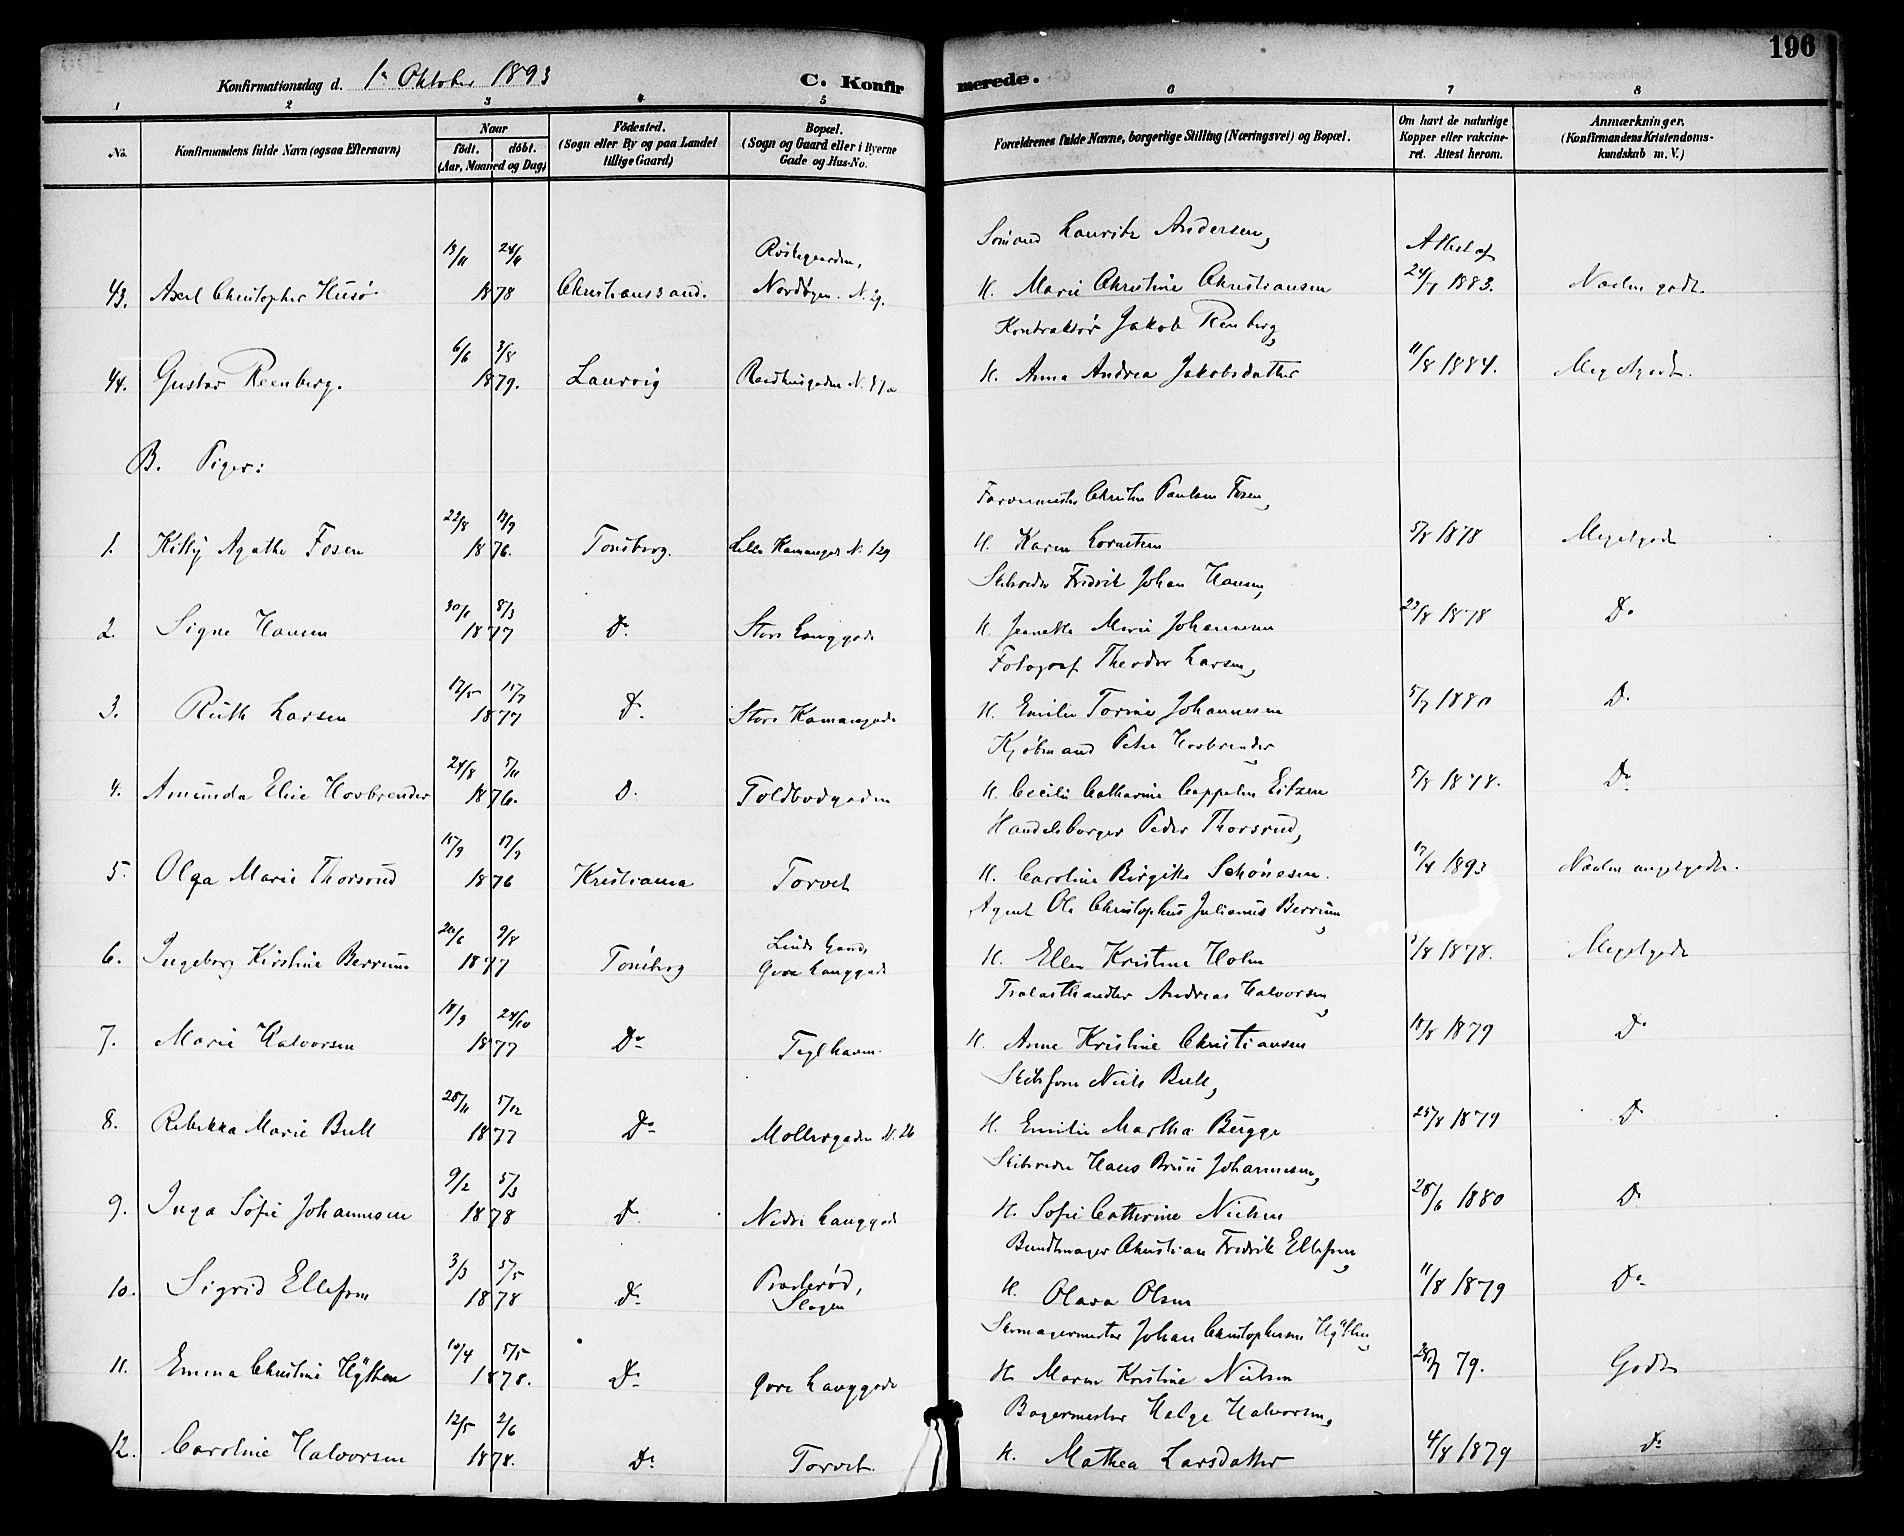 196
Konfirmationsdag d. 1n Oktober 1893
C. Konfirmerede.
1 2 3 4 5 6 7 8
No. Konfirmandens fulde Navn (ogsaa Efternavn) Naar født. døbt. (Aar, Maaned og Dag) Fødested. (Sogn eller By og paa Landet tillige Gaard) Bopæl. (Sogn og Gaard eller i Byerne Gade og Hus-No. Forældrenes fulde Navne, borgerlige Stilling (Næringsvei) og Bopæl. Om havt de naturlige Kopper eller vaccineret. Attest herom. Anmærkninger. (Konfirmandens Kristendomskundskab m. V.)
Sømand Lauritz Andersen,
13/11 24/11 Attest af
43. Axel Christopher Husø 1878 Christianssand. Nordbyen. N. 29. H. Marie Christine Christiansen 24/7 1883. Næsten godt.
Kontraktør Jakob Reenberg,
6/6 3/8
44. Gustav Reenberg. 1879. Laurvig H. Anna Andrea Jakobsdatter 11/8 1884. Meget godt.
B. Piger:
Farvermester Christen Paulsen Fosen,
22/8 13/9
1. Kitty Agathe Fosen 1876. Tønsberg. Lille Kamangade N. 129 H. Karen Lorentzen 5/8 1878 Meget godt
Skibsreder Fredrik Johan Hansen,
30/1 8/3
2. Signe Hansen 1877 Do Store Langgade H. Jeanette Marie Johannesen 22/8 1878 Do
Fotograf Theodor Larsen,
12/5 15/7
3. Ruth Larsen 1877 Do Store Kamangade H. Emilie Torine Johannesen 5/7 1880 Do
Kjøbmand Peter Hovbrender,
24/8 5/11
4. Amunda Elise Hovbrender 1876. Do Toldbodgaden H. Cecilie Catharina Cappelen Eitzen 5/8 1878. Do
Handelsborger Peder Thorsrud,
15/9 17/9
5. Olga Marie Thorsrud 1876 Kristiania Torvet H. Caroline Birgitte Schønesen. 17/4 1893 Næsten meget godt.
Agent Ole Christopher Julianus Berrum,
20/6 9/8
6. Ingeborg Kirstine Berrum 1877 Tønsberg Øvre Langgade H. Ellen Kristine Holm 1/8 1878. Meget godt
Trælasthandler Andreas Halvorsen,
18/9 24/10
7. Marie Halvorsen 1877 Do Teglhavn. H. Anne Kristine Christiansen 18/8 1879 Do
Skibsfører Niels Bull,
28/11 5/12
8. Rebekka Marie Bull 1877 Do Møllergaden N. 26 H. Emilie Martha Bugge 25/8 1879 Do
Skibsreder Hans Bruu Johannesen,
9/2 5/3
9. Inga Sofie Johannesen 1878 Do Nedre Langgade H. Sofie Catherine Nielsen 28/6 1880 Do
Bundtmager Christian Fredrik Ellefsen,
3/3 5/5
10. Sigrid Ellefsen 1878 Do Presterød, Slagen H. Olava Olsen 11/8 1879 Do
Skomagermester Johan Christophersen Hytten,
10/4 5/5
11. Emma Christine Hytten 1878. Do Øvre Langgade H. Maren Kristine Nielsen 79. Godt
Bagermester Helge Halvorsen,
12/5 2/6
12. Caroline Halvorsen 1878. Do Torvet. H. Mathea Larsdatter 4/8 1879 Do